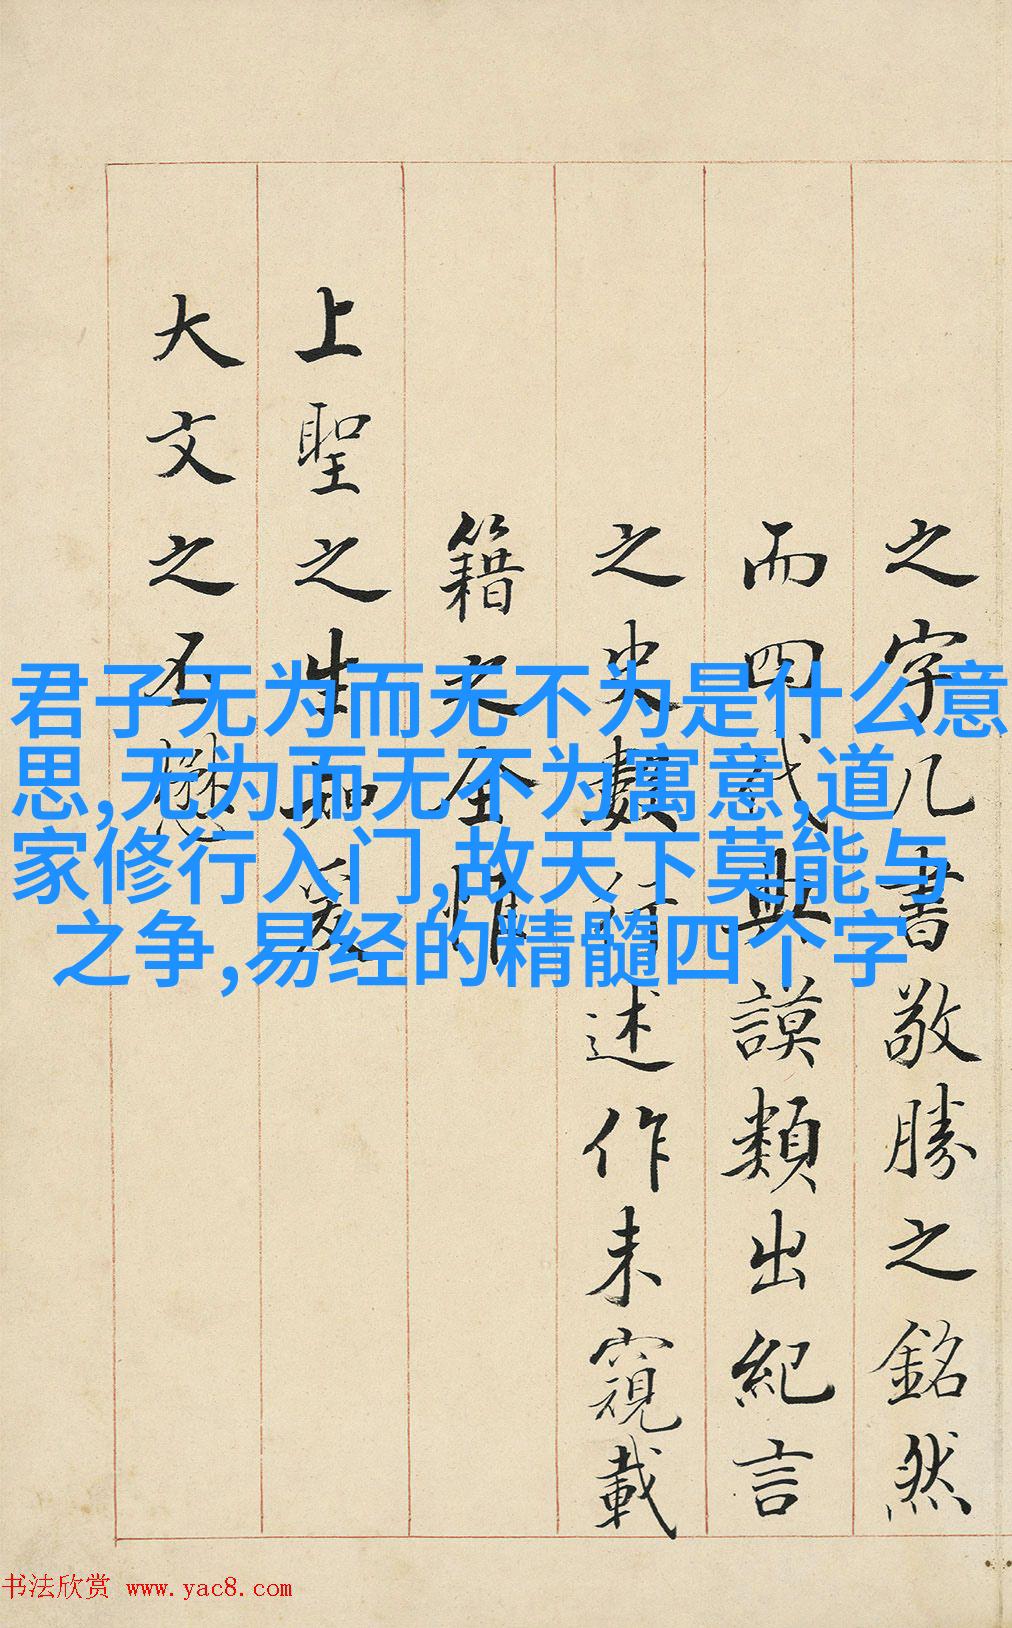 之字几书敬勝之銘然
而四代典謨類出紀言
之史數行述作未窺載
籍之全惟
上聖之生知爰
大文之丕懋
君子无为而无不为是什么意
思,无为而无不为寓意,道
家修行入门,故天下莫能与
之争,易经的精髓四个字
书法欣赏 www.yac8.com